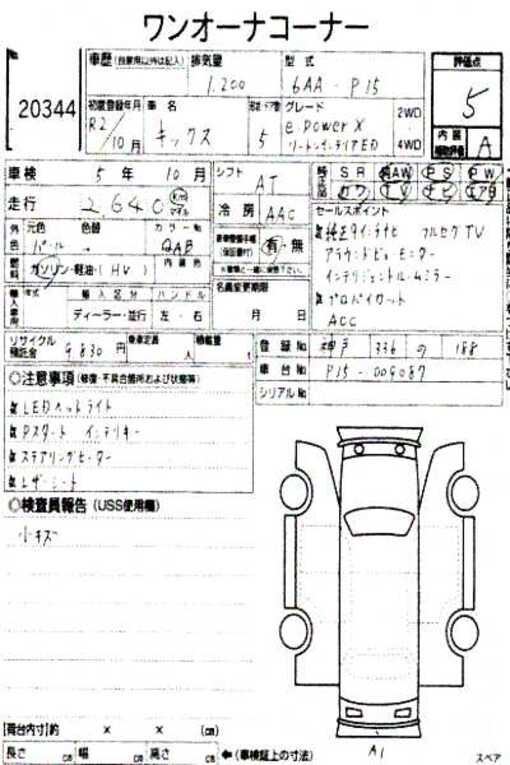 ワンオーナーコーナー
車歴 (自家用以外は記入) 排気量 型式 評価点
20344 1.200 6AA - P15 5
初度登録年月 車名 グレード 2WD
R2/10月 キックス 5 e.POWER X 4WD
内装 A
車検 5年 10月 シフト AT SR AW PS PW
走行 2,640 Km マイル 冷房 AAC カワ TV ナビ エアB
外色 元色 色替 カラーNo セールスポイント
パール QAB 純正9インチナビ フルセグTV
有・無 アラウンドビューモニター
燃料 ガソリン・軽油・(HV) 内装色 インテリジェントルームミラー
名義変更期限 プロパイロット
輸入車 年式 輸入区分 ハンドル ACC
ディーラー・並行 左・右 月 日
リサイクル預託金 9,830円 乗車定員 人 積載量 t 登録No 神戸 336 の 188
◎注意事項 (修復・不具合箇所および状態等) 車台No P15-009087
シリアルNo
LEDヘッドライト
Pスタート インテリキー
ステアリングヒーター
レザーシート
◎検査員報告 (USS使用欄)
小キズ
[荷台内寸] 約 × × (cm) A1
長さ cm 幅 cm 高さ cm ←(車検証上の寸法) スペア